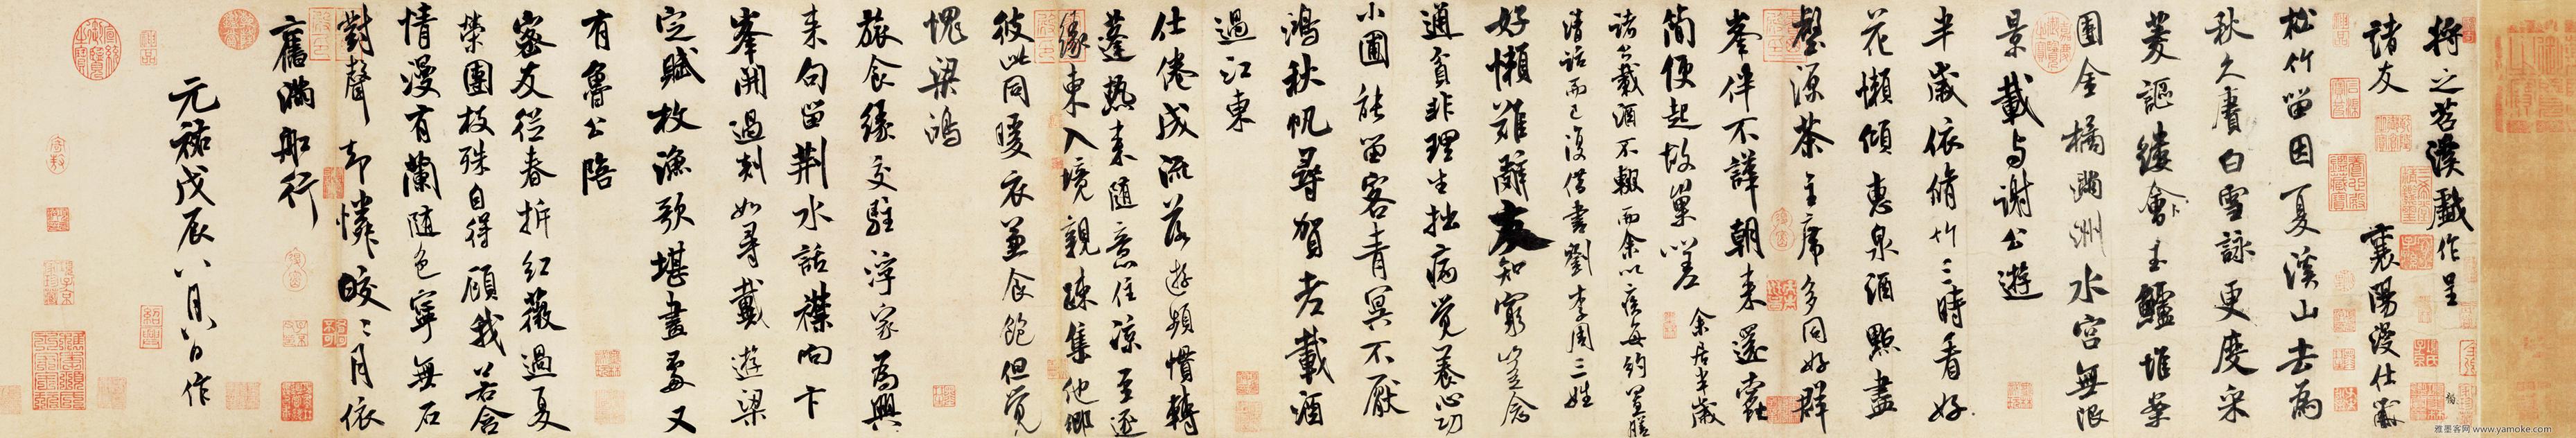 将之苕溪戲作呈
諸友　襄陽漫仕黻
松竹留因夏溪山去為
秋久賡白雪詠更度采
菱謳縷會玉鱸堆案
團金橘滿洲水宮無限
景載与謝公遊
半歲依脩竹三時看好
花懶傾惠泉酒點盡
壑源茶主席多同好群
峯伴不譁朝来還蠹
簡便起故巢嗟　余居半歲
諸公載酒不輟而余以疾每約置膳
清話而已復借書劉李周三姓
好懶難辭友知窮豈念
通貧非理生拙病覺養心功
小圃能留客青冥不厭
鴻秋帆尋賀老載酒
過江東
仕倦成流落遊頻慣轉
蓬熱来隨意住涼至逐
緣東入境親踈集他鄉
彼此同暖衣兼食飽但覺
愧梁鴻
旅食緣交駐浮家為興
来句留荆水話襟向卞
峯開過剡如尋戴遊梁
定賦枚漁歌堪畫處又
有魯公陪
密友從春拆紅薇過夏
榮團枝殊自得顧我若含
情漫有蘭隨色寧無石
對聲却憐皎〻月依
舊滿船行
元祐戊辰八月八日作
雅墨客网 www.yamoke.com